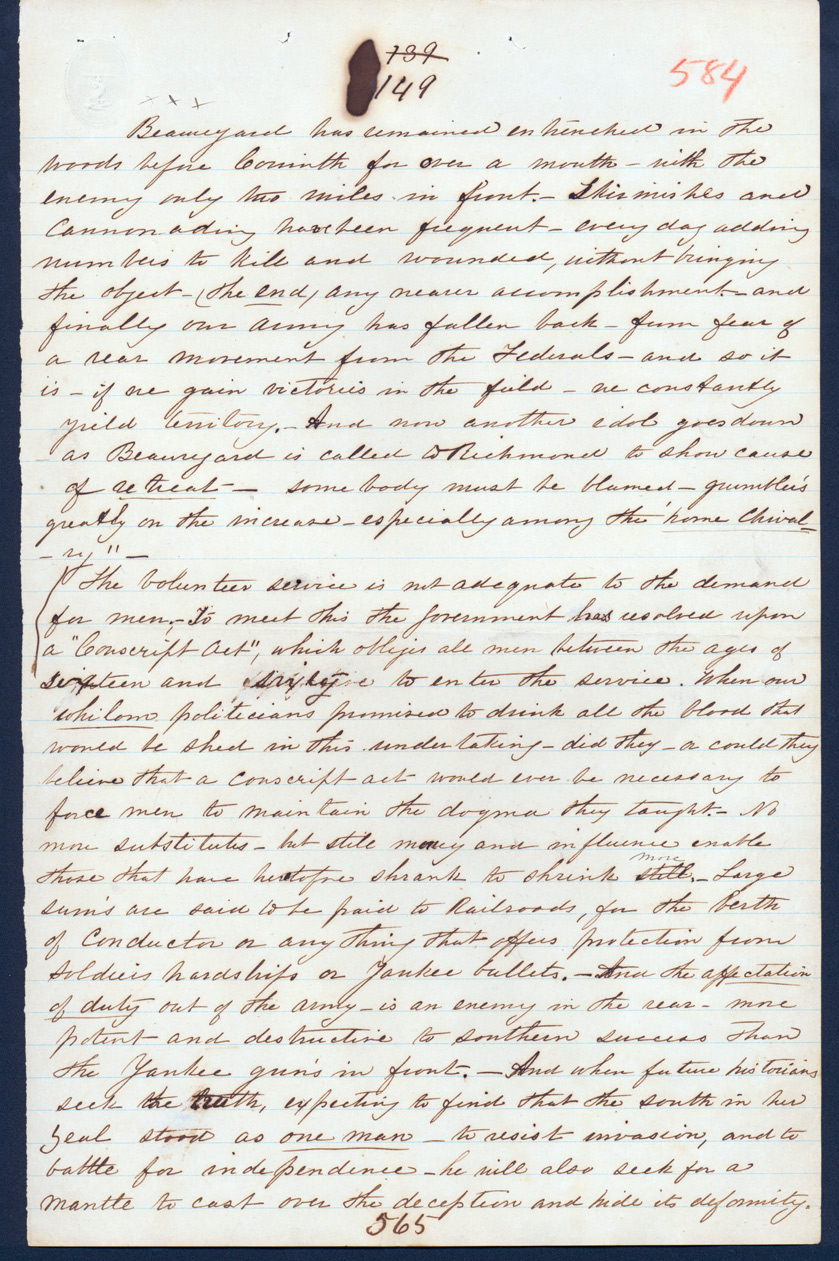 139
149
584
x x x
Beauregard has remained entrenched in the
woods before Corinth for over a month - with the
enemy only two miles in front. - Skirmishes and
Cannonading have been frequent - every day adding
numbers to kill and wounded, without bringing
the object - (the end) any nearer accomplishment - and
finally our army has fallen back - from fear of
a rear movement from the Federals - and so it
is - if we gain victories in the field - we constantly
yield territory. - And now another idol goes down
as Beauregard is called to Richmond to show cause
of retreat - some body must be blamed - grumblers
greatly on the increase - especially among the "home Chival-
-ry" -
The volunteer service is not adequate to the demand
for men, - To meet this the government has resolved upon
a "Conscript Act", which obliges all men between the ages of
sixteen and to enter the service. When our
whilom politicians promised to drink all the blood that
would be shed in this undertaking - did they - or could they
believe that a conscript act would ever be necessary to
force men to maintain the dogma they taught. - No
more substitutes - but still money and influence enable
more
those that have heretofore shrank to shrink still. - Large
sum's are said to be paid to Railroads, for the berth
of Conductor or any thing that offers protection from
soldiers hardships or Yankee bullets. - And the affectation
of duty out of the army - is an enemy in the rear - more
potent and destructive to southern success than
the Yankee gun's in front. - And when future historians
seek the truth, expecting to find that the south in her
zeal stood as one man - to resist invasion, and to
battle for independence - he will also seek for a
mantle to cast over the deception and hide its deformity.
565